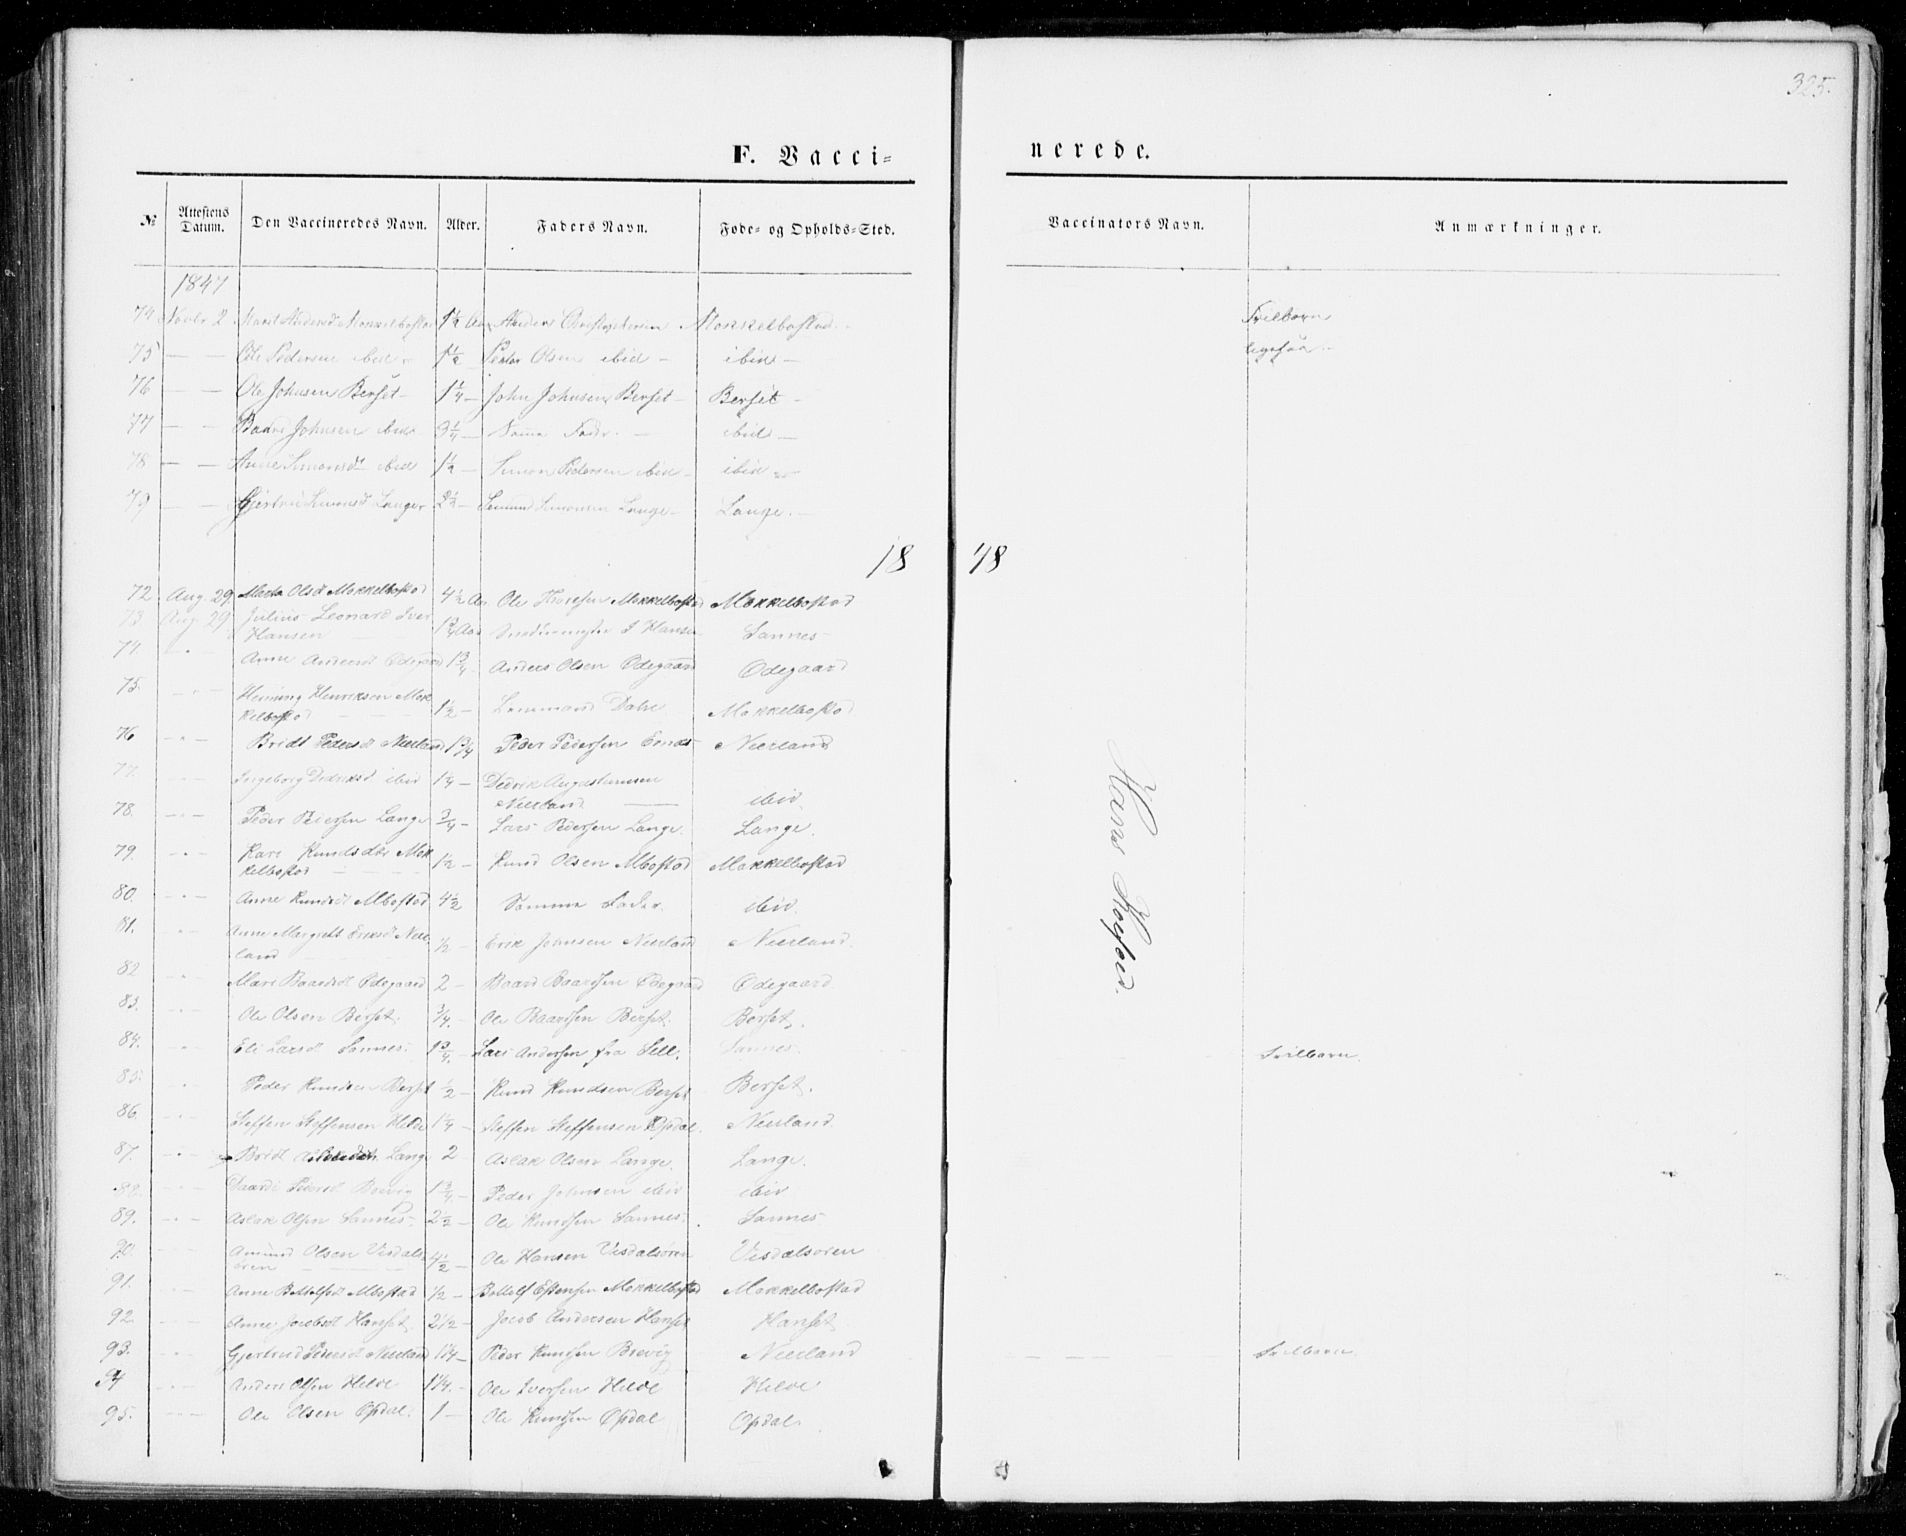 325.
F. Vacci- nerede.
№ Attestens Datum. Den Vaccineredes Navn. Alder. Faders Navn. Føde- og Opholds-Sted. Vaccinators Navn. Anmærkninger.
1847
74 Novbr 2 Marit Andersd Mokkelbostad 1½ Aar Anders Christophersen Mokkelbostad Frilbarn
75 — — Ole Pedersen ibid 1½ Peder Olsen ibid — ibid — ligesaa
76 — — Ole Johnsen Berset 1¼ — John Johnsen Berset — Berset —
77 — — Baard Johnsen ibid 3¼ — Samme Fader — ibid —
78 — — Anne Simonsd ibid 1½ — Simon Pedersen ibid — ibid
79 — — Lange 2½ — Simonsen Lange — Lange —
18 48
72 Aug. 29 Marta Olsd Mokkelbostad 4½ Aar Ole Mokkelbostad Mokkelbostad
73 Aug 29 Julius Leonard Iver
Hansen 1¾ Aar I Hansen Sannes
74. Anne Andersd Odegaard 1¾ Anders Olsen Odegaard Odegaard
75. Henrik Henriksen Mok
kelbostad 1½ — Lensmand Dahl Mokkelbostad
76 Bridt Pedersd Nierland 1¾ Peder Pedersen Nierland
77. Ingeborg Didriksd ibid 1¼ — Didrik Augustinusen
Nierland ibid
78. Peder Pedersen Lange ¾ — Lars Pedersen Lange. Lange.
79. Kari Knudsdtr Mok
kelbostad ½ — Knud Olsen Mbostad Mokkelbostad
80. Anne Knudsd Mbostad 4½ Samme Fader. ibid.
81. Anne Margrett Eriksd Nier
land ½ — Erik Johnsen Nierland Nierland.
82 Mari Baardsd Odegaard 2 — Baard Baardsen Odegaard Odegaard.
83. Ole Olsen Berset. ¾. — Ole Baardsen Berset. Berset.
84. Eli Larsd Sannes. 1¾. — Lars Andersen fra Lell. Sannes. Frilbarn.
85. Peder Knudsen Berset ½ — Knud Knudsen Berset Berset.
86. Steffen Steffensen Hilde 1¼ — Steffen Steffensen Opdal. Nierland
87. Bridt Lange 2 — Aslak Olsen Lange. Lange.
88. Pedersd Brevig 1¾ — Peder Johnsen ibid ibid
89. Aslak Olsen Sannes. 2½ — Ole Knudsen Sannes. Sannes
90. Amund Olsen Visdals
ören 4½ Ole Hansen Visdalsören Visdalsoren
91. Anne Bottolfsd Mbostad ½ — Bottolf Estensen Mokkelbostad Mokkelbostad
92. Anne Jacobsd Hanset. 2½ — Jacob Andersen Hanset Hanset
93. Gjertrud Pedersd Nierland 1¼ — Peder Knudsen Brevig Nierland Frilbarn.
94 Anders Olsen Hilde 1¼. — Ole Iversen Hilde Hilde
95. Ole Olsen Opdal. 1 — Ole Knudsen Opdal Opdal.
Hans